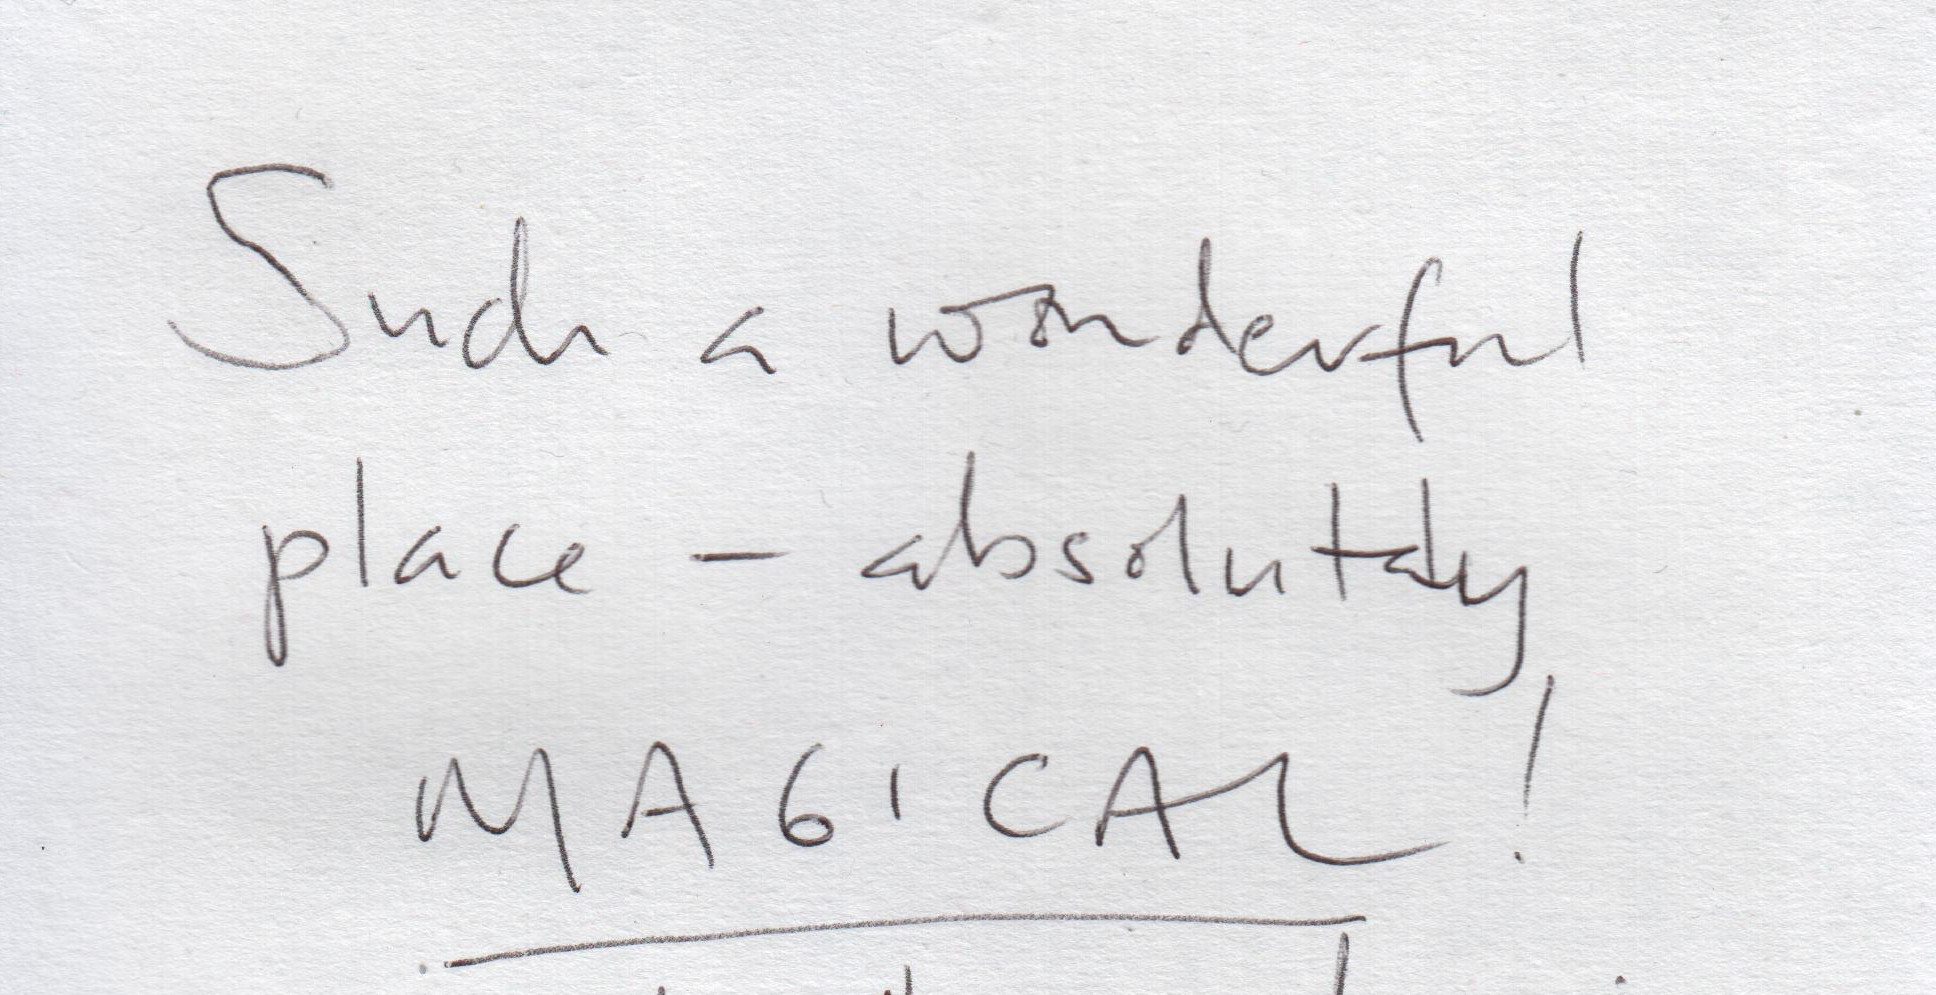 Such a wonderful
place – absolutely
MAGICAL!